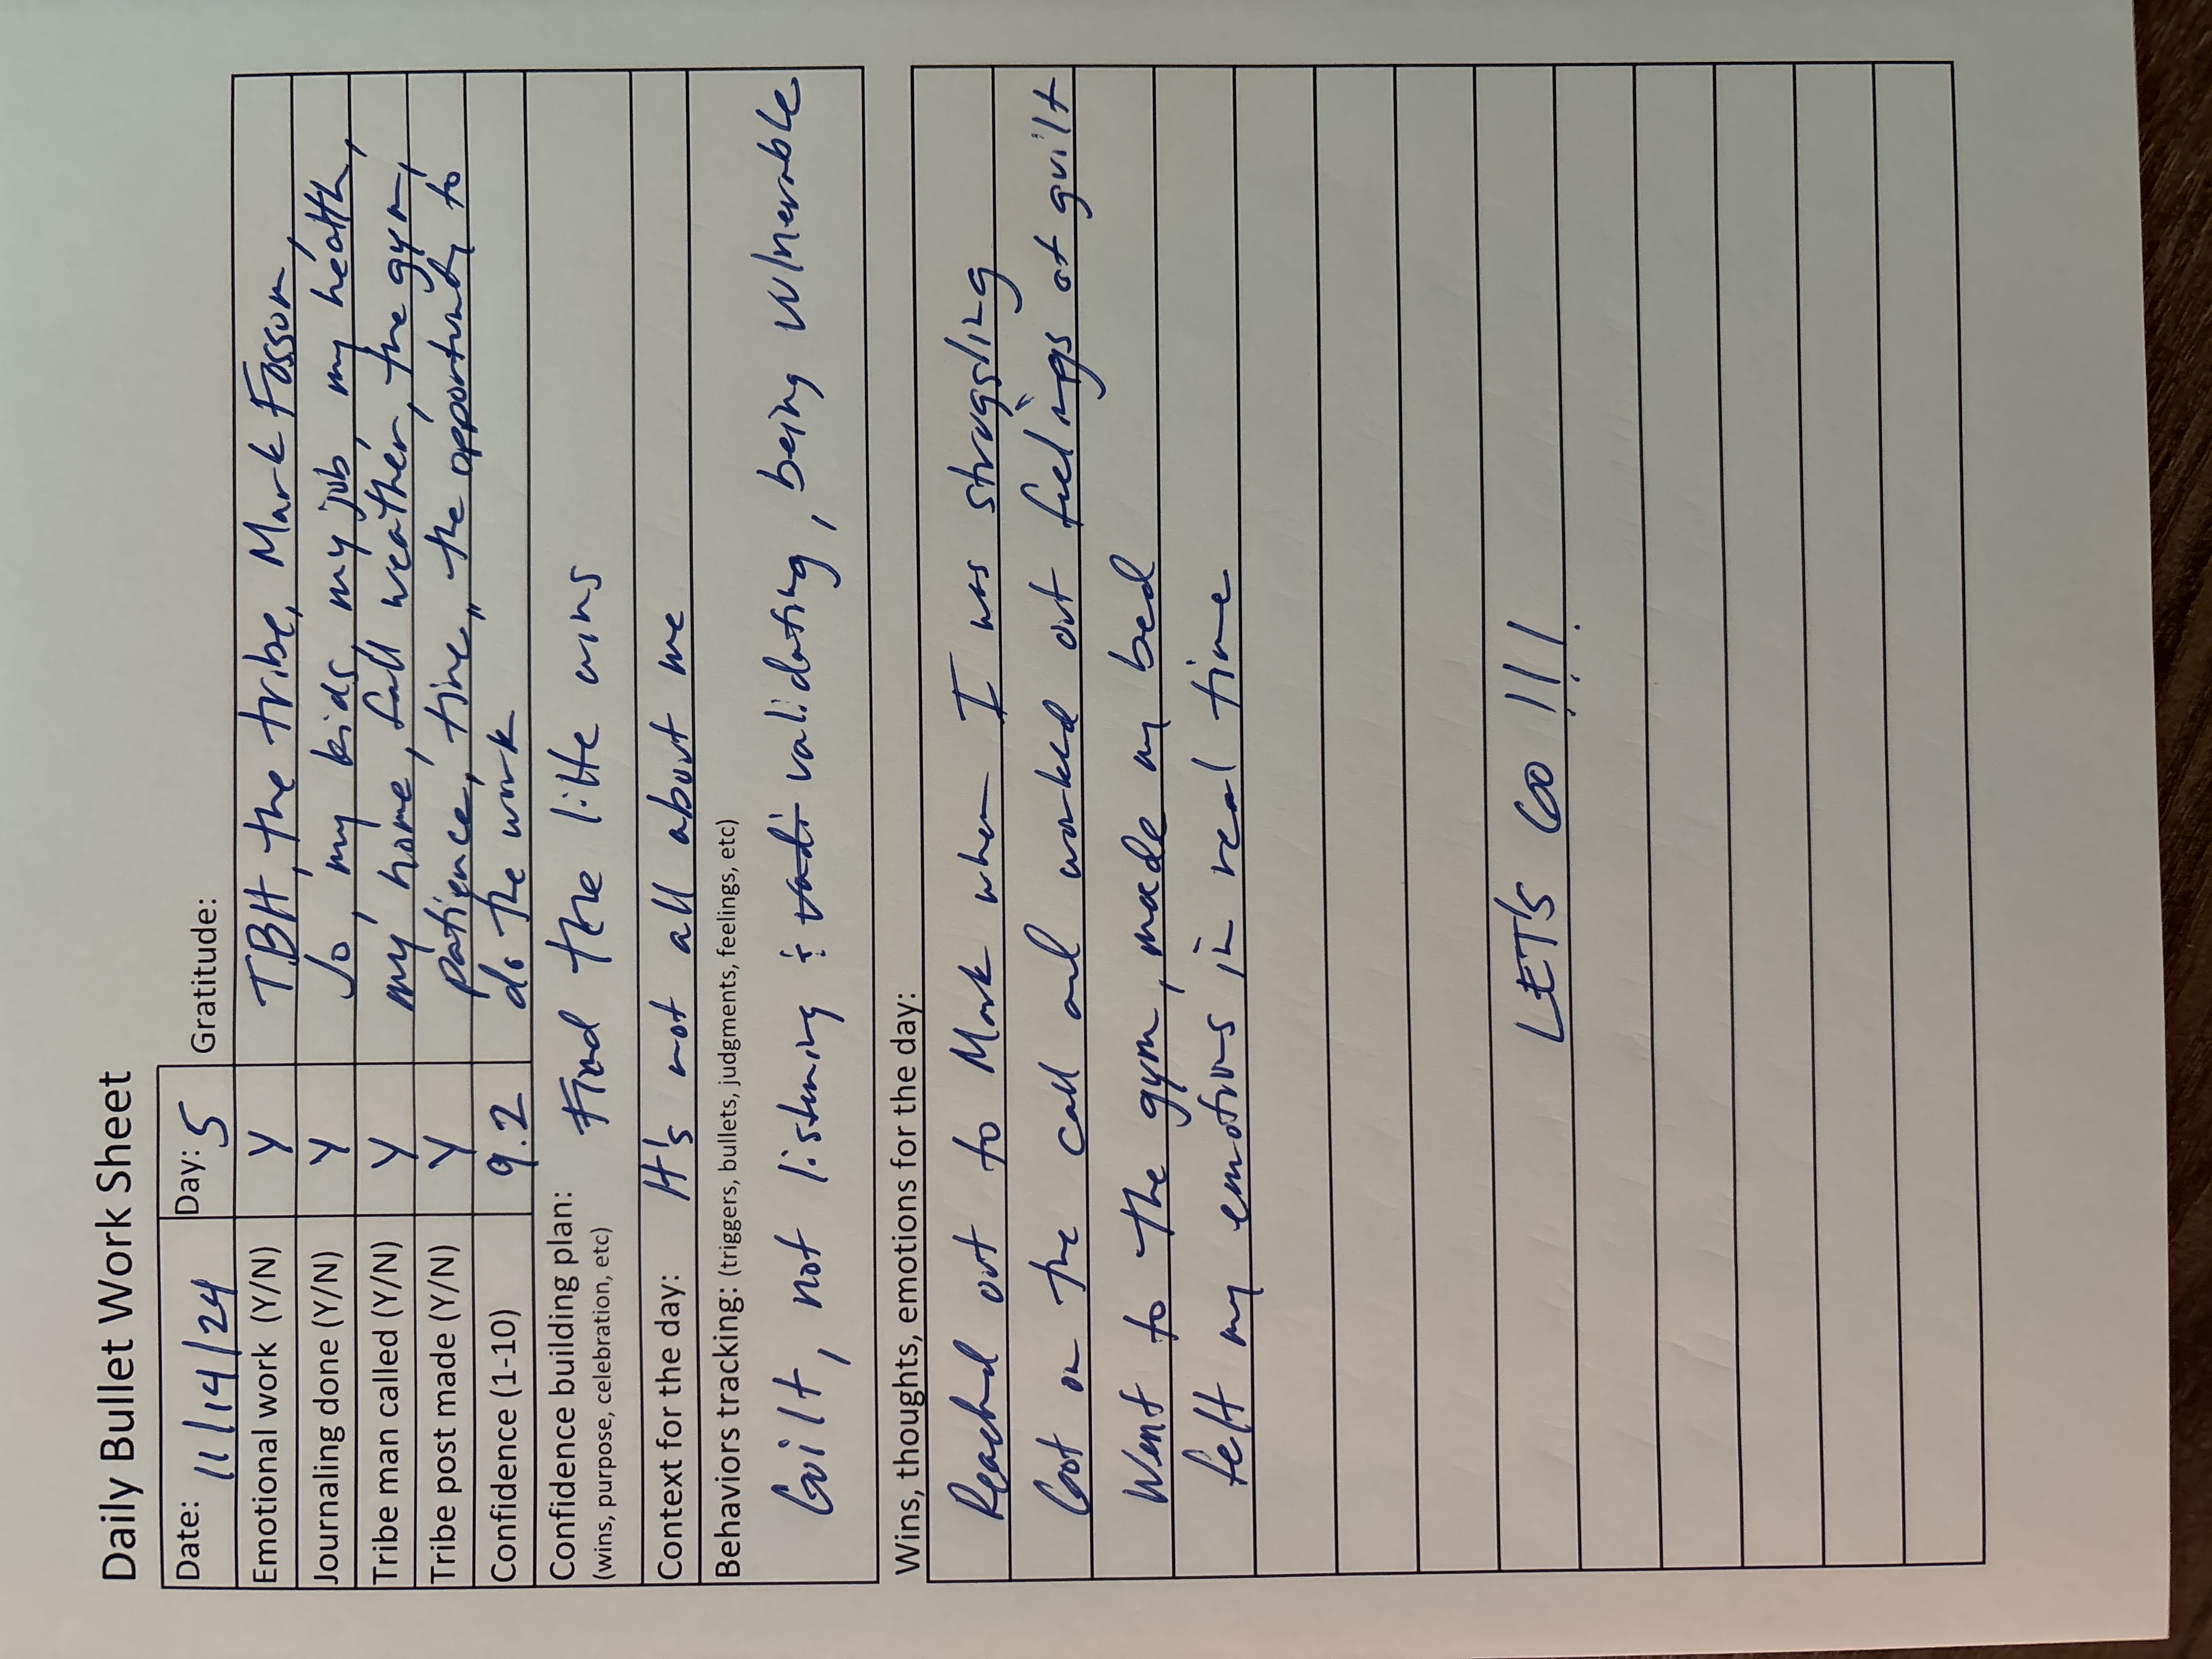 Daily Bullet Work Sheet
Date: 11/14/24 Day: 5 Gratitude:
Emotional work (Y/N) Y TBH, the tribe, Mark Fossum,
Journaling done (Y/N) Y Jo, my kids, my job, my health,
Tribe man called (Y/N) Y my home, fall weather, the gym,
Tribe post made (Y/N) Y patience, time,, the opportunity to
Confidence (1-10) 9.2 do the work
Confidence building plan: Find the little wins
(wins, purpose, celebration, etc)
Context for the day: It's not all about me
Behaviors tracking: (triggers, bullets, judgments, feelings, etc)
Guilt, not listening & validating, being vulnerable
Wins, thoughts, emotions for the day:
Reached out to Mark when I was struggling
Got on the call and worked out feelings of guilt
Went to the gym, made my bed
felt my emotions in real time
LET'S GO !!!!